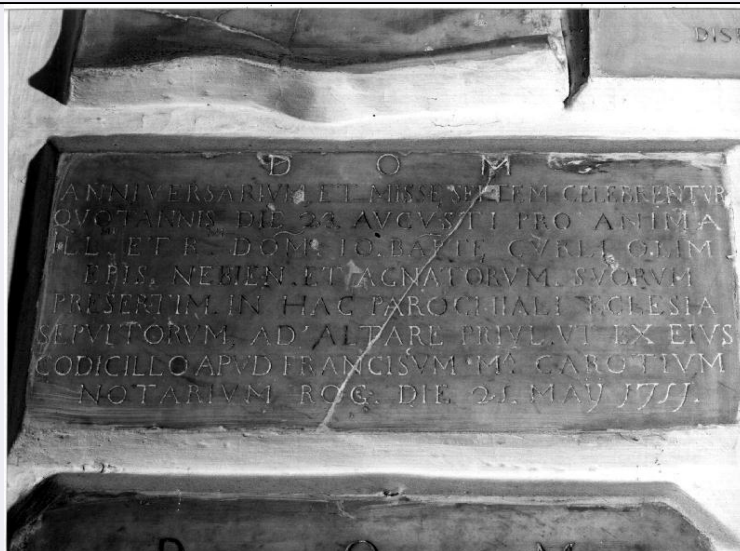 DISP
D O M
ANNIVERSARIVM ET MISSE SEPTEM CELEBRENTVR
QVOTANNIS DIE 26 AVGVSTI PRO ANIMA
ILL. ET R. DOM. IO. BAPTE CVRLI OLIM
EPIS. NEBIEN. ET AGNATORVM. SVORVM
PRESERTIM. IN HAC PAROCHIALI ECLESIA
SEPVLTORVM, AD ALTARE PRIVL. VT EX EIVS
CODICILLO APVD FRANCISVM Mᴬ. GAROTIVM
NOTARIVM ROG. DIE 21. MAIJ
D O M